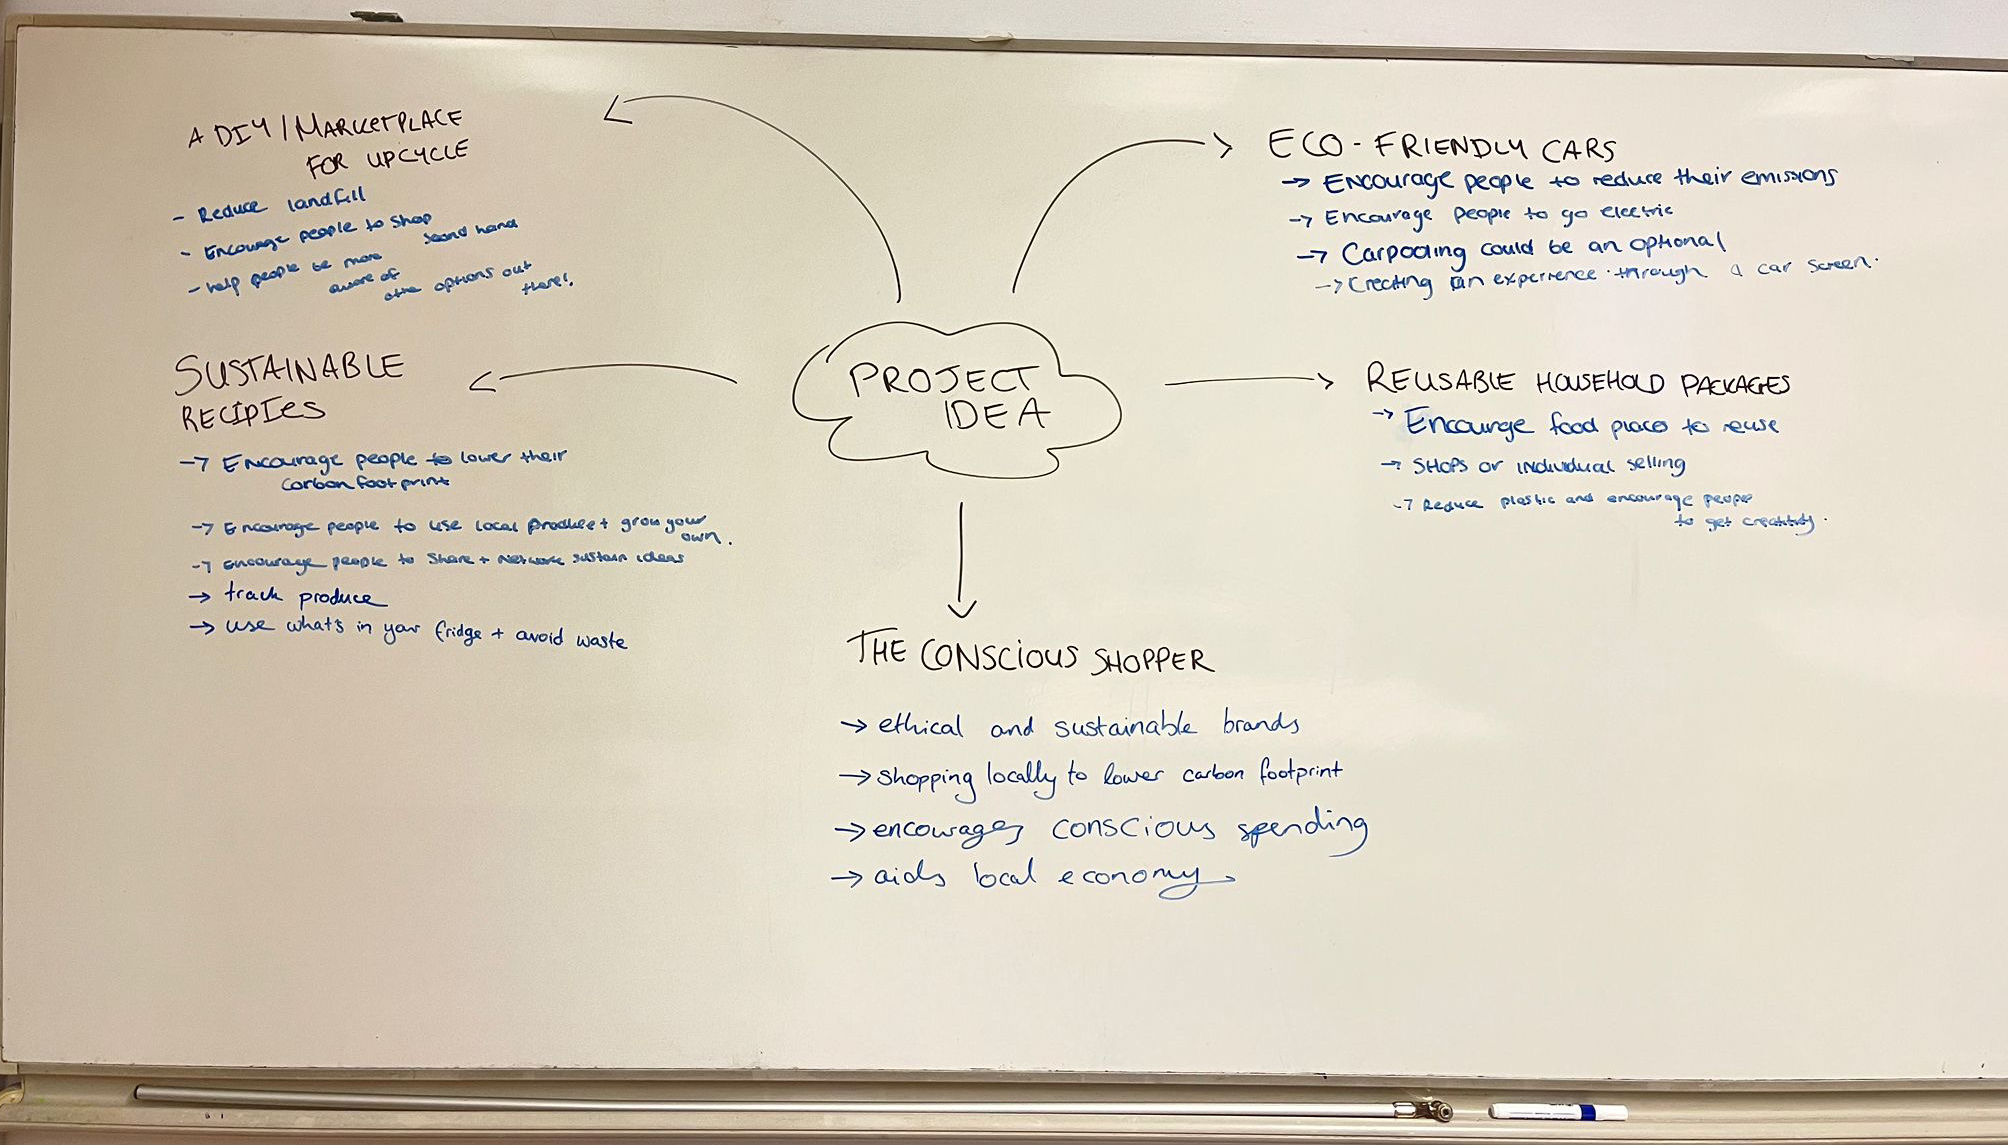 A DIY/MARKETPLACE
FOR UPCYCLE
- Reduce landfill
- Encourage people to shop
second hand
- help people be more
aware of
other options out
there!
SUSTAINABLE
RECIPIES
→ Encourage people to lower their
carbon footprint
→ Encourage people to use local produce + grow your
own.
→ encourage people to share + network sustain ideas
→ track produce
→ use what's in your fridge + avoid waste
PROJECT
IDEA
ECO-FRIENDLY CARS
→ Encourage people to reduce their emissions
→ Encourage people to go electric
→ Carpooling could be an optional
→ Creating an experience through a car screen.
REUSABLE HOUSEHOLD PACKAGES
→ Encourge food places to reuse
→ SHOPS or individual selling
→ Reduce plastic and encourage people
to get
THE CONSCIOUS SHOPPER
→ ethical and sustainable brands
→ shopping locally to lower carbon footprint
→ encourages conscious spending
→ aids local economy